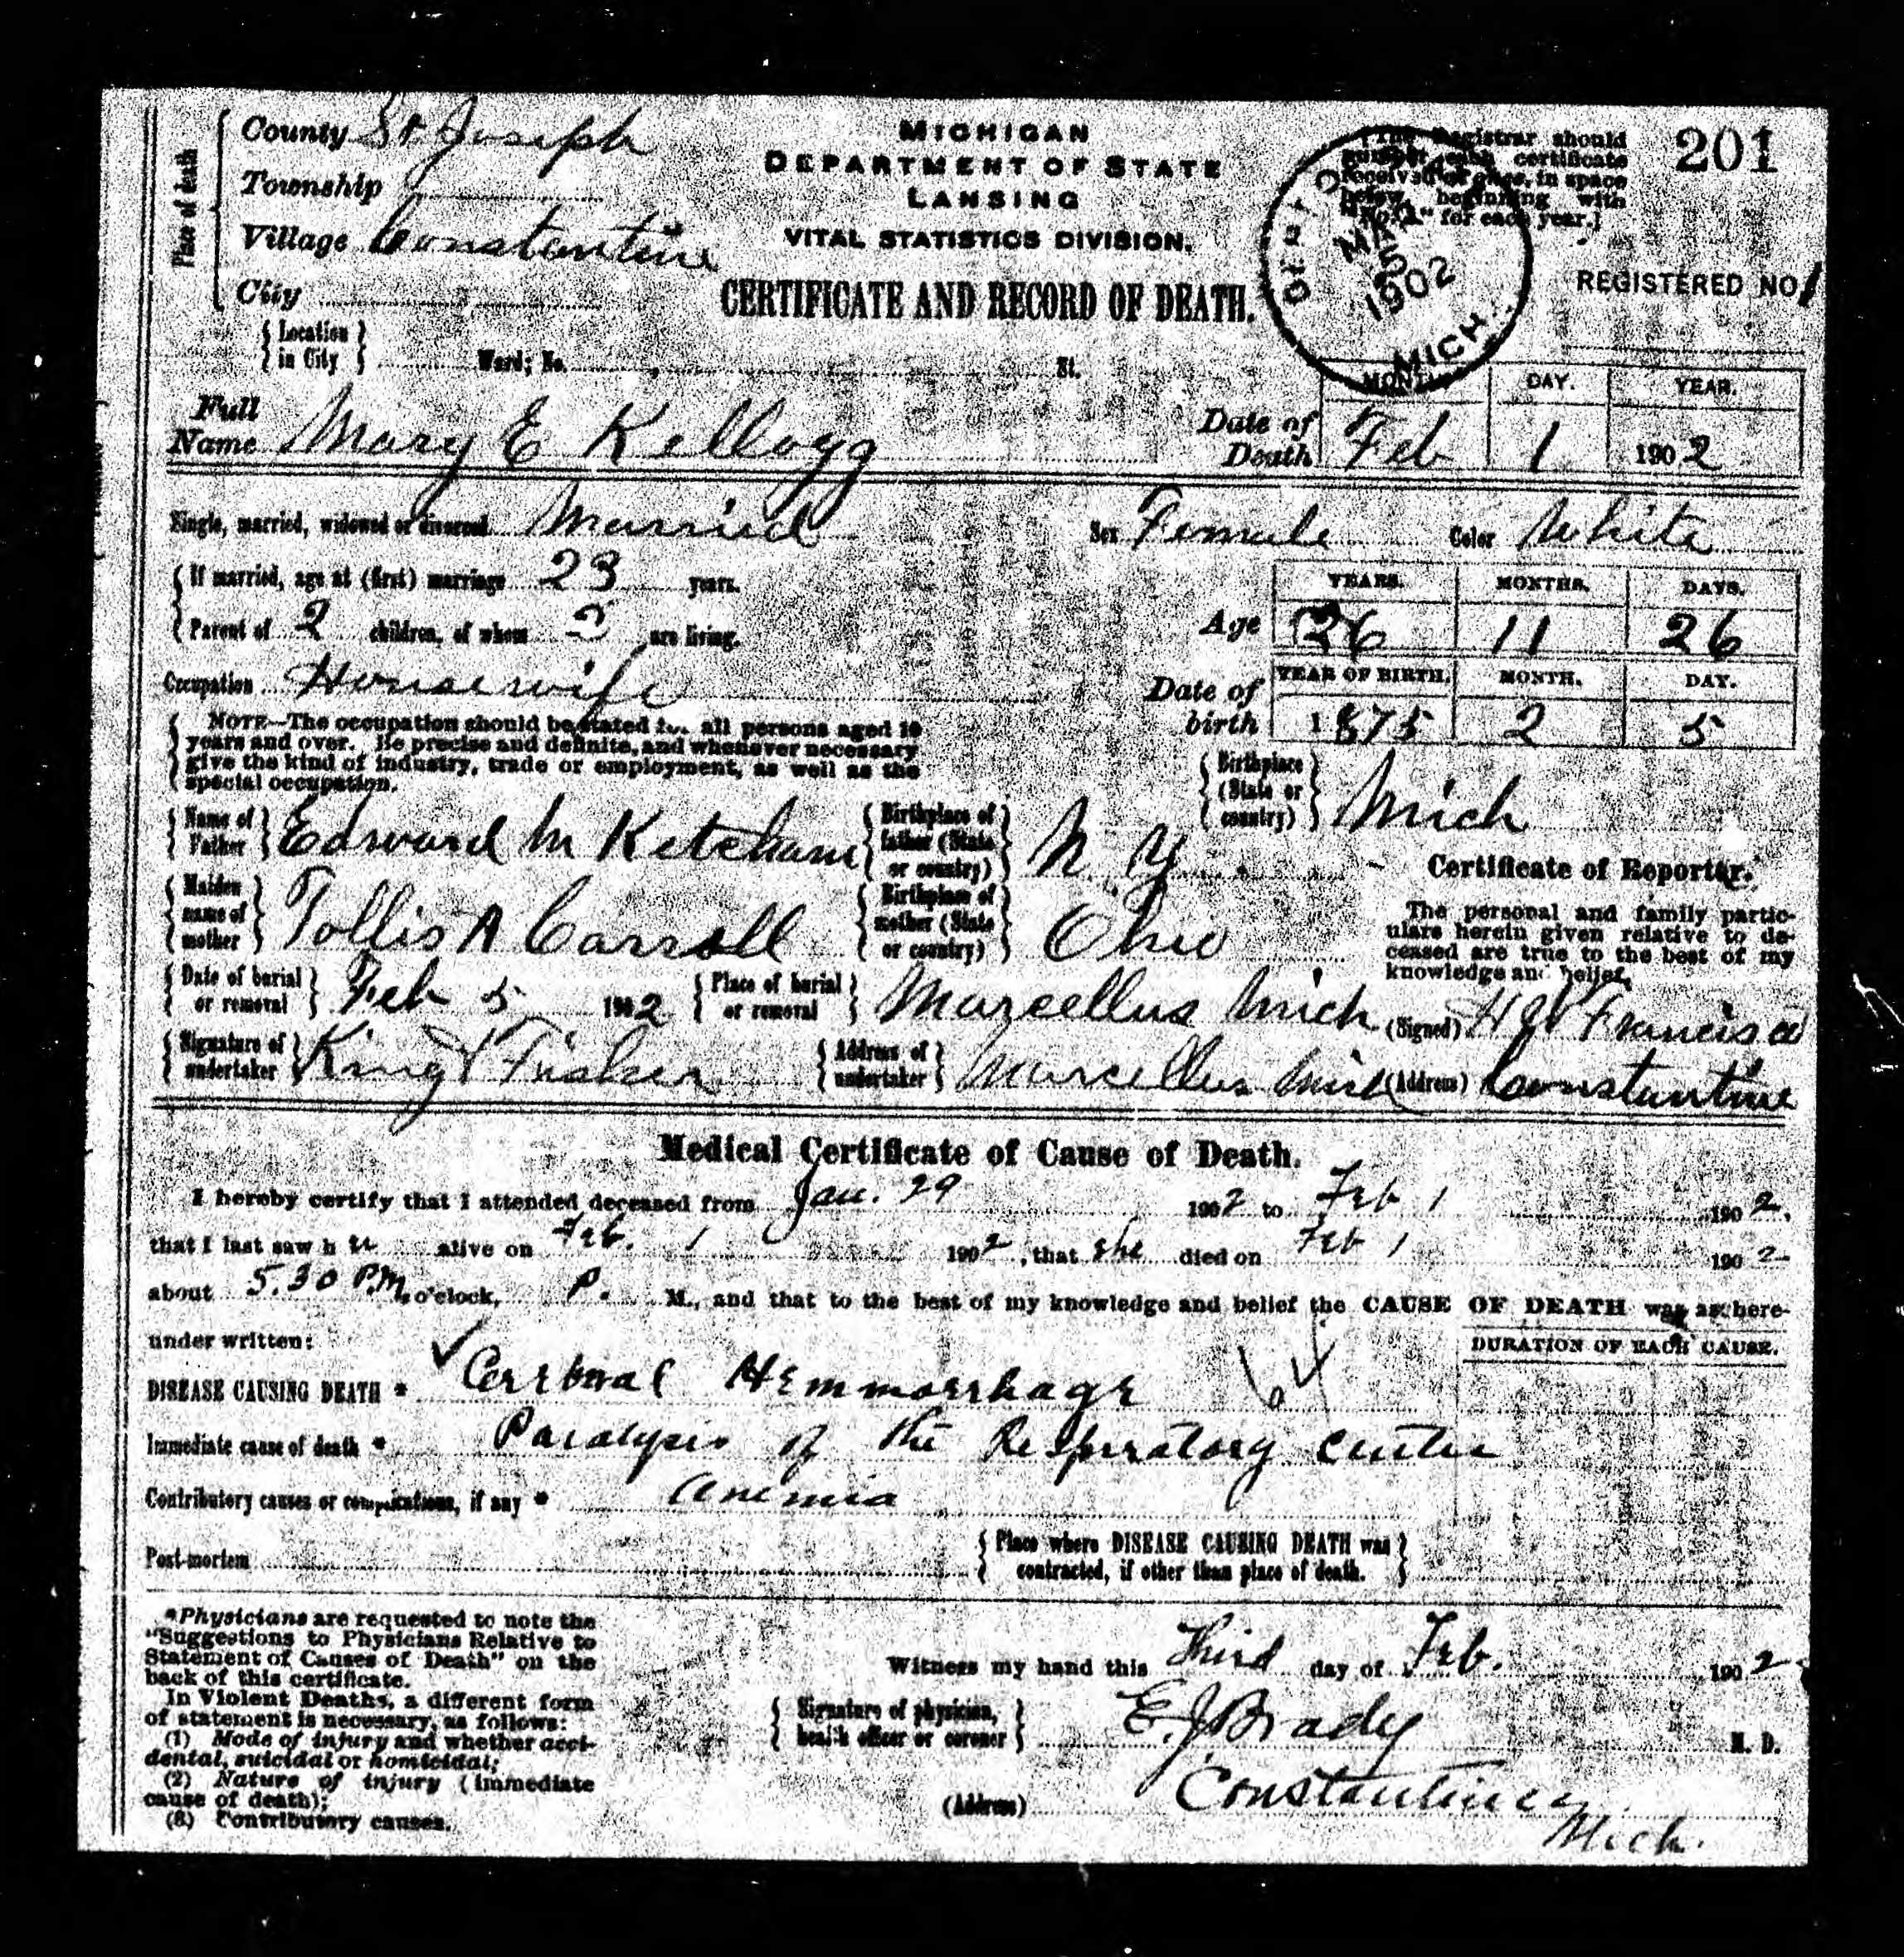 County St Joseph
Township
Village Constantine
City
Place of death
MICHIGAN
DEPARTMENT OF STATE
LANSING
VITAL STATISTICS DIVISION.
CERTIFICATE AND RECORD OF DEATH.
Registrar should
number each certificate
in space
below, beginning with
"No. 1" for each year.]
201
MAR
5
1902
MICH.
REGISTERED NO. 1
{ Location in City } Ward; No. , St.
Full Name Mary E Kellogg
Date of Death
MONTH. DAY. YEAR.
Feb 1 1902
Single, married, widowed or divorced Married
Sex Female Color White
If married, age at (first) marriage 23 years.
Parent of 2 children, of whom 2 are living.
Age
YEARS. MONTHS. DAYS.
26 11 26
Occupation Housewife
Date of birth
YEAR OF BIRTH. MONTH. DAY.
1875 2 5
NOTE—The occupation should be stated for all persons aged 10
years and over. Be precise and definite, and whenever necessary
give the kind of industry, trade or employment, as well as the
special occupation.
Birthplace (State or country) Mich
Name of Father Edward M Ketcham
Birthplace of father (State or country) N. Y.
Maiden name of mother A Carroll
Birthplace of mother (State or country) Ohio
Certificate of Reporter.
The personal and family partic-
ulars herein given relative to de-
ceased are true to the best of my
knowledge and belief.
Date of burial or removal Feb 5 1902
Place of burial or removal Marcellus Mich
(Signed) Francisco
Signature of undertaker King & Fisher
Address of undertaker Marcellus Mich
(Address) Constantine
Medical Certificate of Cause of Death.
I hereby certify that I attended deceased from Jan. 29 1902 to Feb 1 1902,
that I last saw h er alive on Feb. 1 1902, that she died on Feb 1 1902
about 5.30 P.M. o'clock, P. M., and that to the best of my knowledge and belief the CAUSE OF DEATH was as here-
under written:
DURATION OF EACH CAUSE.
DISEASE CAUSING DEATH * Cerebral Hemmorrhage 64
Immediate cause of death * Paralysis of the Respiratory center
Contributory causes or complications, if any * Anemia
Post-mortem
Place where DISEASE CAUSING DEATH was
contracted, if other than place of death.
*Physicians are requested to note the
"Suggestions to Physicians Relative to
Statement of Causes of Death" on the
back of this certificate.
In Violent Deaths, a different form
of statement is necessary, as follows:
(1) Mode of injury and whether acci-
dental, suicidal or homicidal;
(2) Nature of injury (immediate
cause of death);
(3) Contributory causes.
Witness my hand this Third day of Feb. 1902
Signature of physician, health officer or coroner E. J. Brady M. D.
(Address) Constantine
Mich.